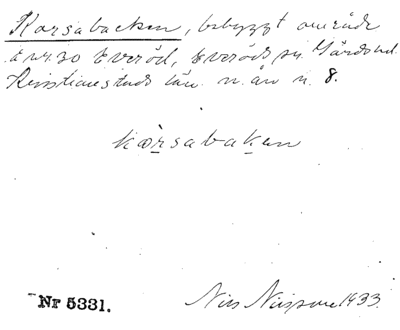 Korsabacken, bebyggt område
å nr. 30 Everöd, Everöds sn. Gärds hd.
Kristianstads län. n. än n. 8.
kårsabaken
Nr 5331.
Nils 1933.